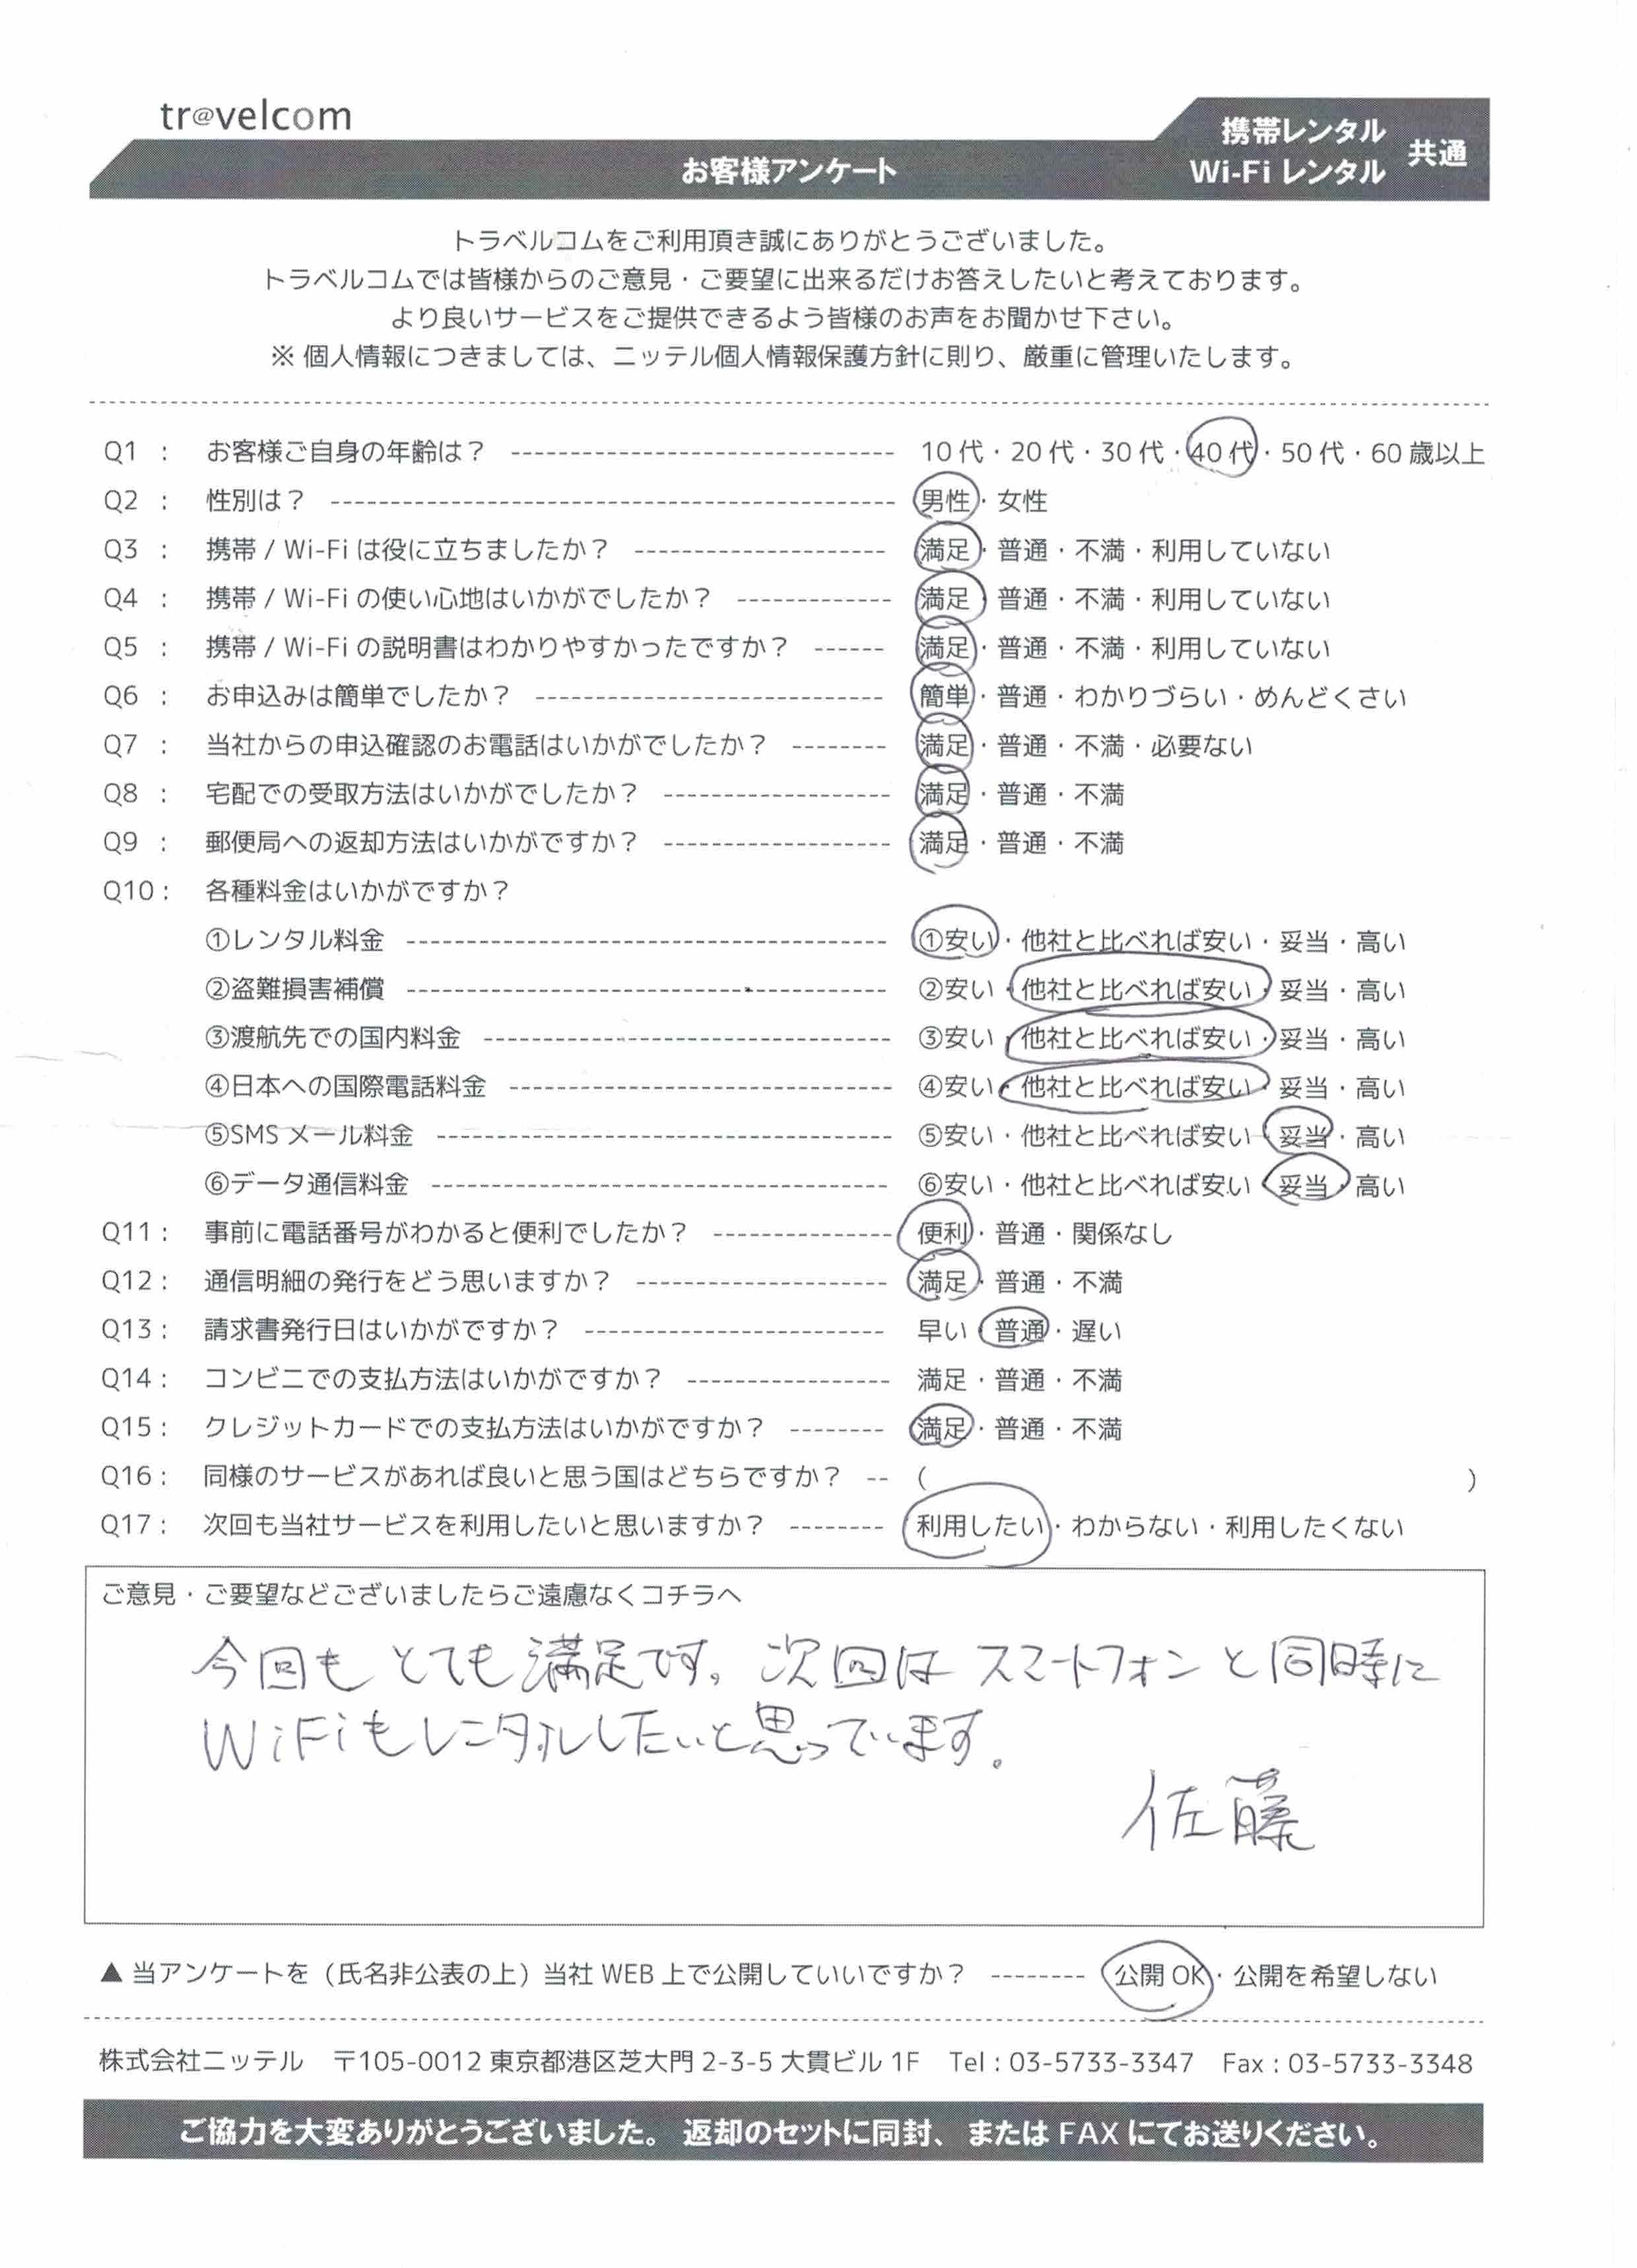 tr@velcom
お客様アンケート
携帯レンタル
Wi-Fi レンタル
共通
トラベルコムをご利用頂き誠にありがとうございました。
トラベルコムでは皆様からのご意見・ご要望に出来るだけお答えしたいと考えております。
より良いサービスをご提供できるよう皆様のお声をお聞かせ下さい。
※ 個人情報につきましては、ニッテル個人情報保護方針に則り、厳重に管理いたします。
Q1 : お客様ご自身の年齢は？ 10代・20代・30代・40代・50代・60歳以上
Q2 : 性別は？ 男性・女性
Q3 : 携帯 / Wi-Fi は役に立ちましたか？ 満足・普通・不満・利用していない
Q4 : 携帯 / Wi-Fi の使い心地はいかがでしたか？ 満足・普通・不満・利用していない
Q5 : 携帯 / Wi-Fi の説明書はわかりやすかったですか？ 満足・普通・不満・利用していない
Q6 : お申込みは簡単でしたか？ 簡単・普通・わかりづらい・めんどくさい
Q7 : 当社からの申込確認のお電話はいかがでしたか？ 満足・普通・不満・必要ない
Q8 : 宅配での受取方法はいかがでしたか？ 満足・普通・不満
Q9 : 郵便局への返却方法はいかがですか？ 満足・普通・不満
Q10 : 各種料金はいかがですか？
①レンタル料金 ①安い・他社と比べれば安い・妥当・高い
②盗難損害補償 ②安い・他社と比べれば安い・妥当・高い
③渡航先での国内料金 ③安い・他社と比べれば安い・妥当・高い
④日本への国際電話料金 ④安い・他社と比べれば安い・妥当・高い
⑤SMS メール料金 ⑤安い・他社と比べれば安い・妥当・高い
⑥データ通信料金 ⑥安い・他社と比べれば安い・妥当・高い
Q11 : 事前に電話番号がわかると便利でしたか？ 便利・普通・関係なし
Q12 : 通信明細の発行をどう思いますか？ 満足・普通・不満
Q13 : 請求書発行日はいかがですか？ 早い・普通・遅い
Q14 : コンビニでの支払方法はいかがですか？ 満足・普通・不満
Q15 : クレジットカードでの支払方法はいかがですか？ 満足・普通・不満
Q16 : 同様のサービスがあれば良いと思う国はどちらですか？ ( )
Q17 : 次回も当社サービスを利用したいと思いますか？ 利用したい・わからない・利用したくない
ご意見・ご要望などございましたらご遠慮なくコチラへ
今回もとても満足です。次回はスマートフォンと同時に
WiFiもレンタルしたいと思っています。
佐藤
▲ 当アンケートを（氏名非公表の上）当社 WEB 上で公開していいですか？ 公開 OK・公開を希望しない
株式会社ニッテル 〒105-0012 東京都港区芝大門 2-3-5 大貫ビル 1F Tel : 03-5733-3347 Fax : 03-5733-3348
ご協力を大変ありがとうございました。 返却のセットに同封、または FAX にてお送りください。